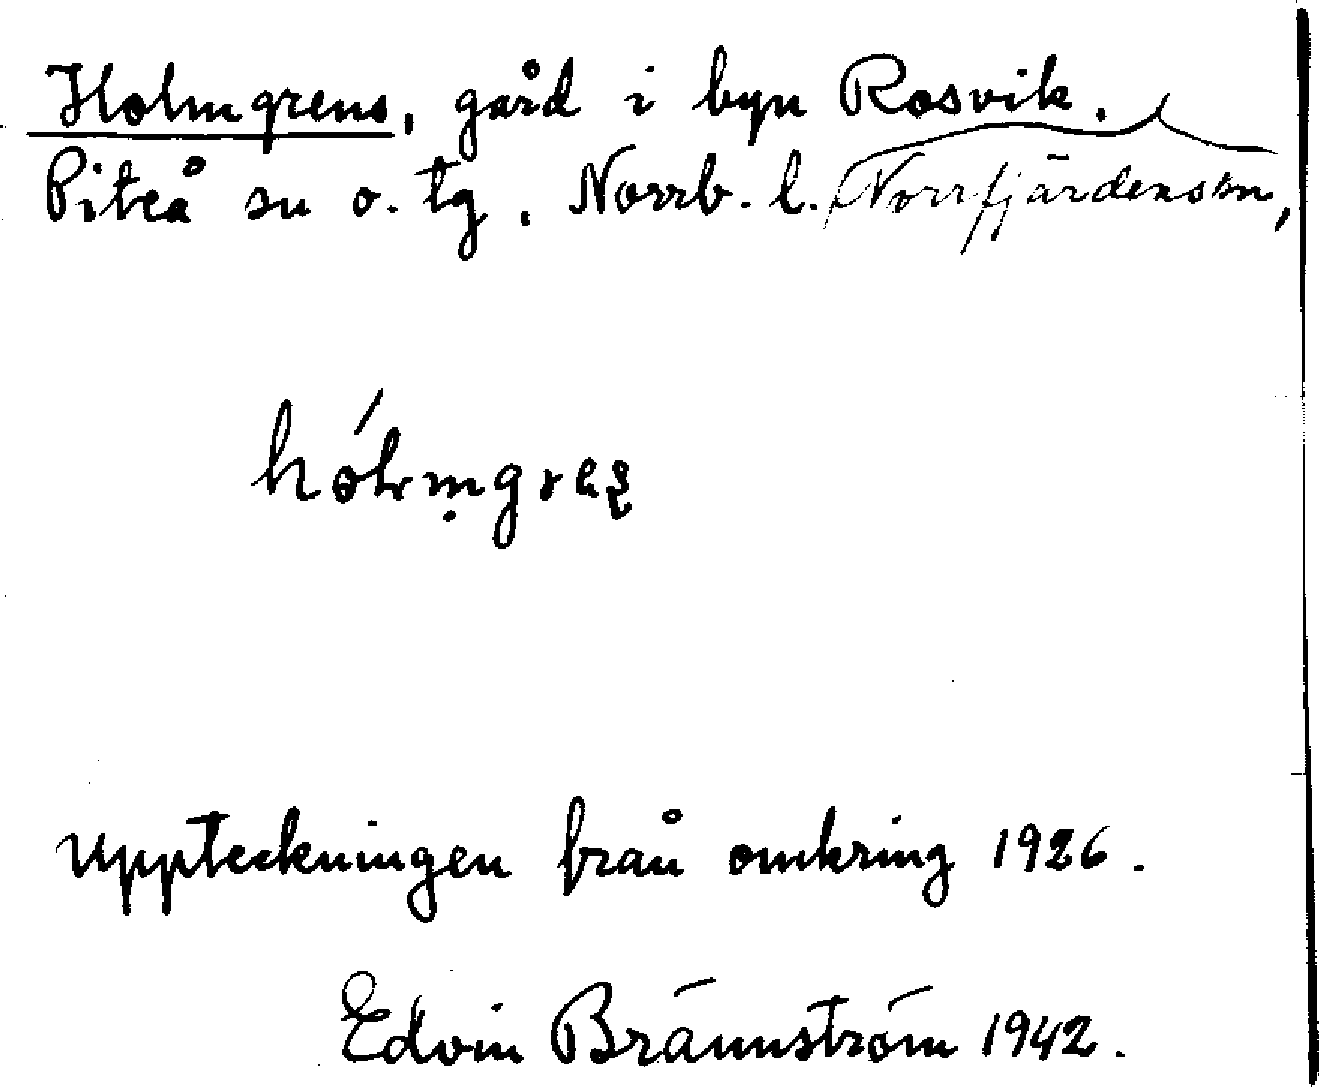 Holmgrens, gård i byn Rosvik.
Piteå sn o. tg, Norrb. l. Norrfjärdens sn,
Uppteckningen från omkring 1926.
Edvin Brännström 1942.